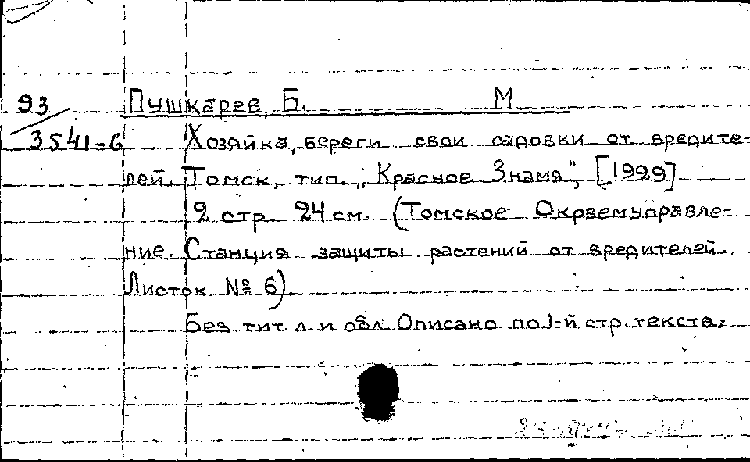 93 Пушкарев, Б. М
3541-6 Хозяйка, береги свои садовки от вредите-
лей. Томск, тип. „Красное Знамя", [1929]
2 стр. 24 см. (Томское Окрземуправле-
ние. Станция защиты растений от вредителей.
Листок № 6)
Без тит. л. и обл. Описано по 1-й стр. текста.